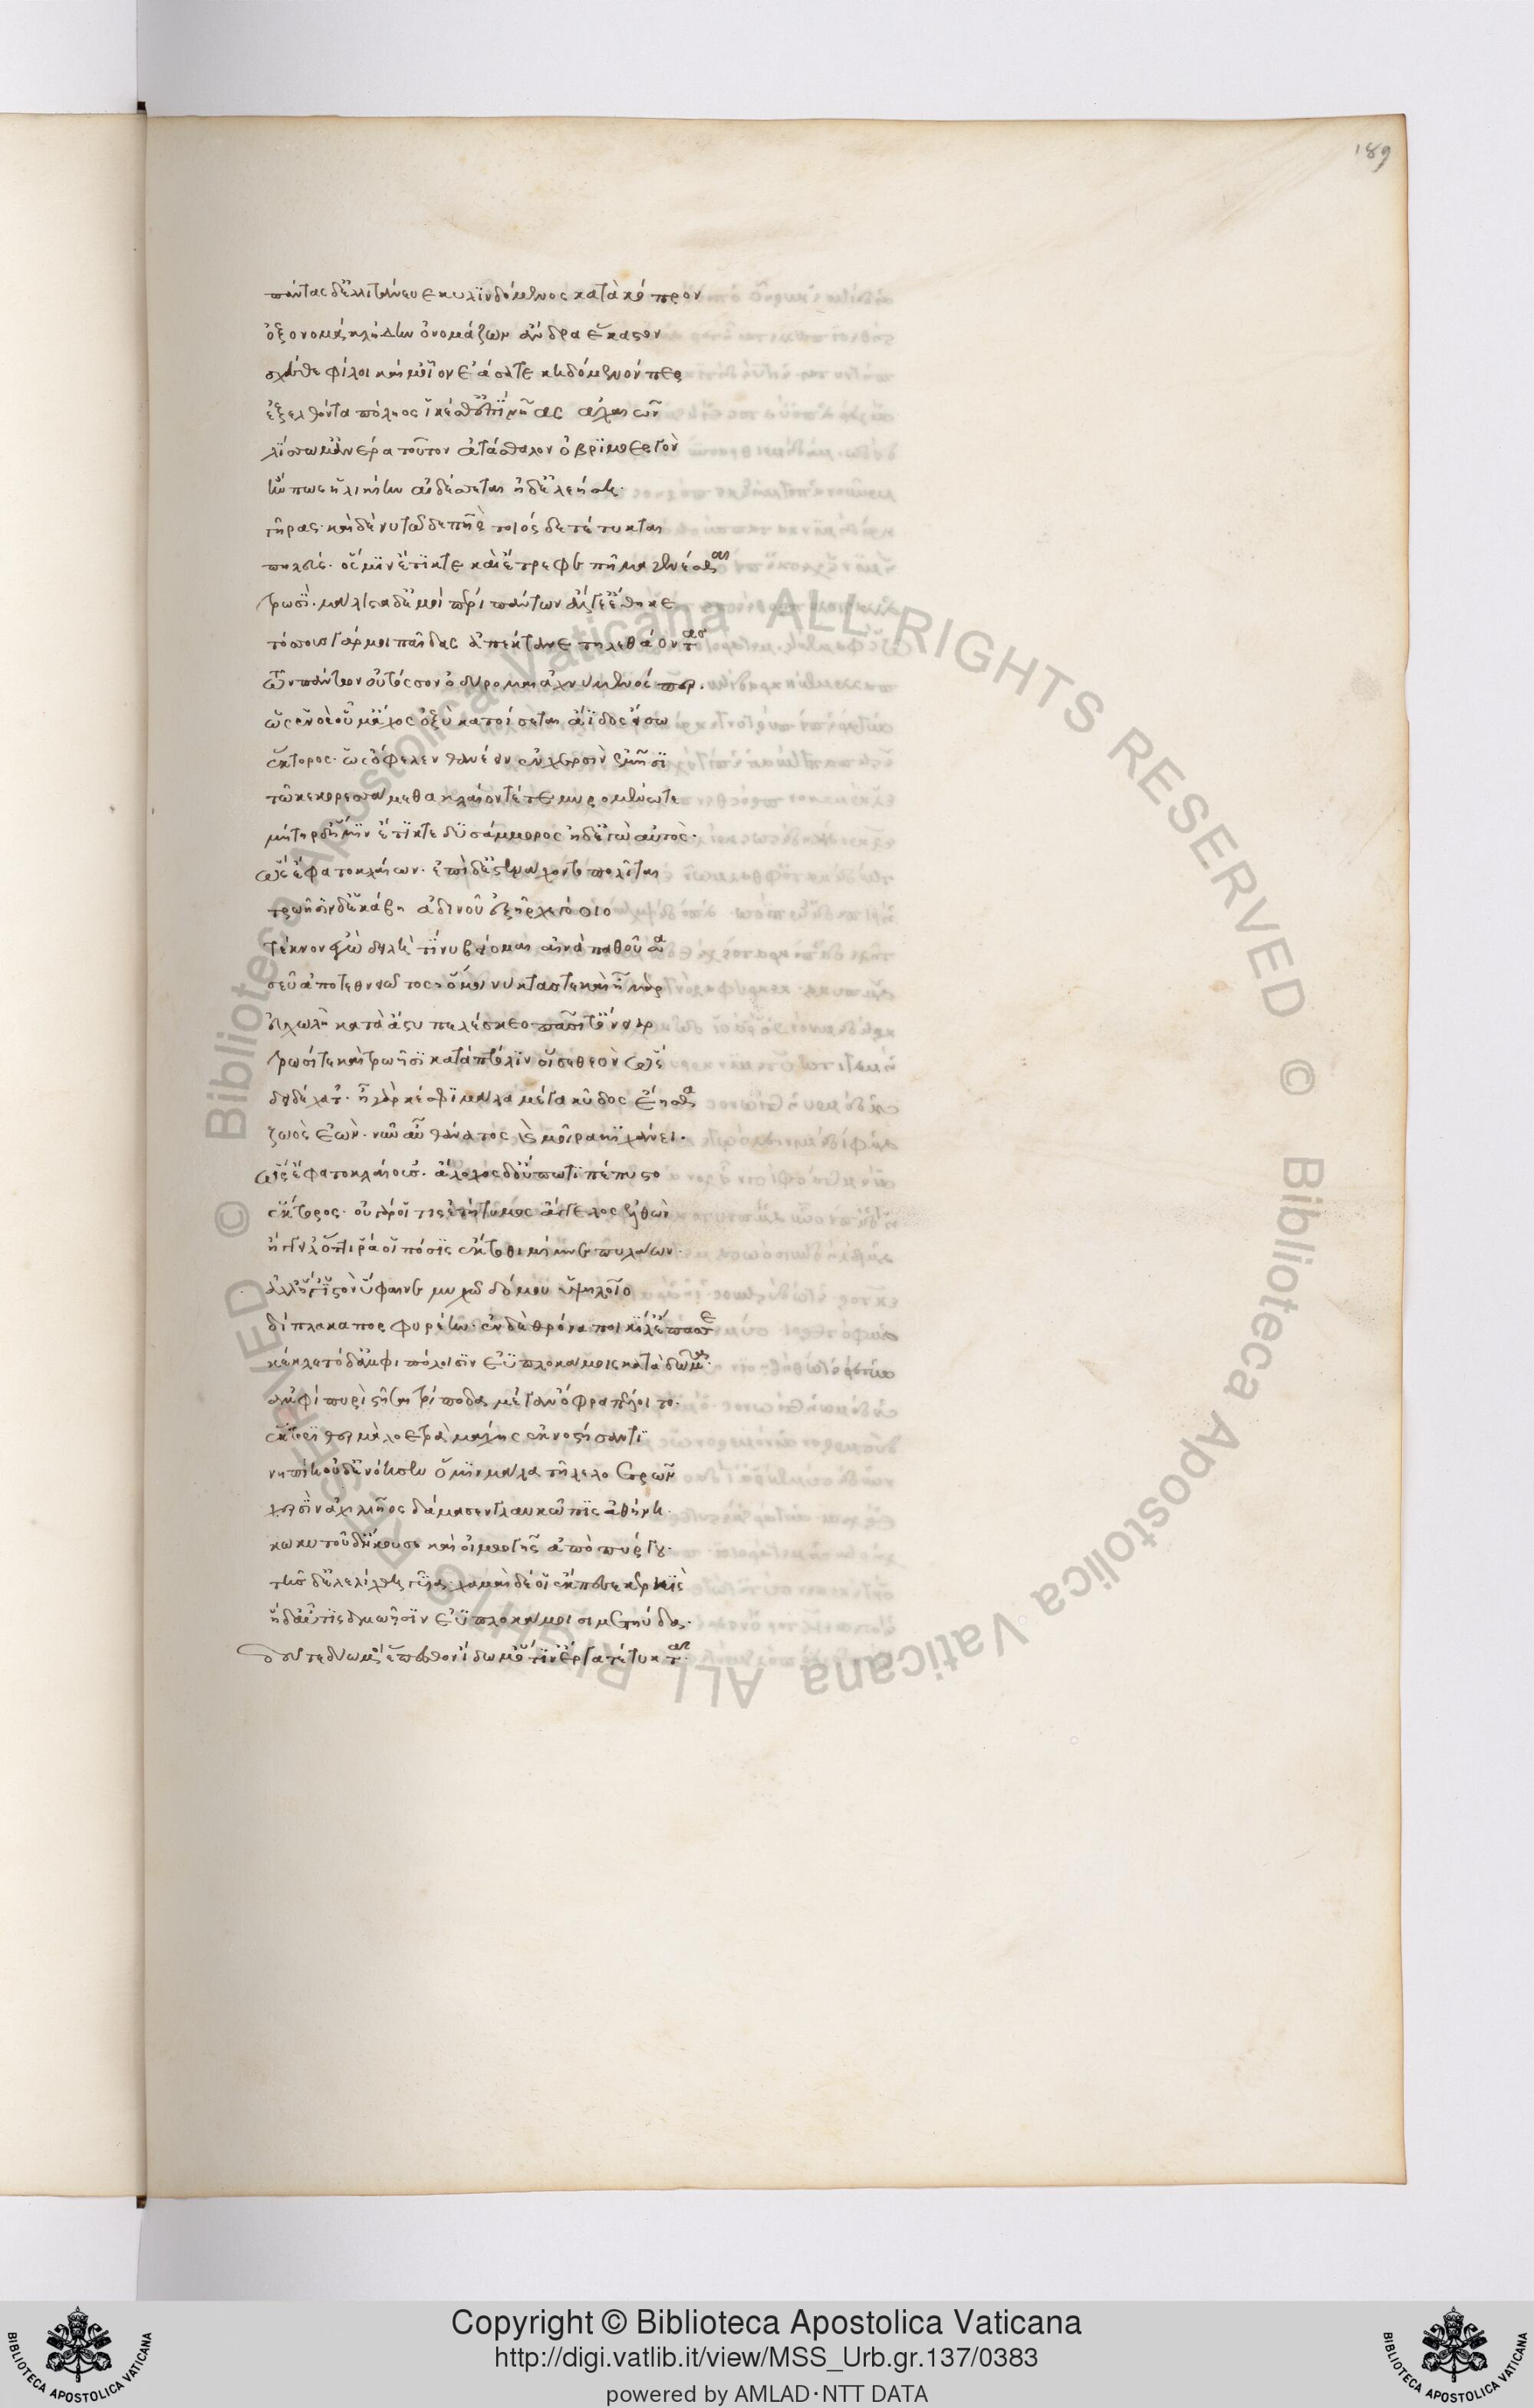 189
πάντας δ' ἐλλιτάνευε κυλϊνδόμενος κατὰ κόπρον
ἐξονομακλήδην ὀνομάζων ἄνδρα ἕκαστον
σχέσθε φίλοι καί μ' οἶον ἐάσατε κηδόμενόν περ
ἐξελθόντα πόληος ἱκέσθ' ἐπῒ νῆας ἀχαιῶν
λίσσωμ' ἀνέρα τοῦτον ἀτάσθαλον ὀβρϊμοεργὸν
ἤν πως ἡλικίην αἰδέσσεται ἠδ' ἐλεήσῃ·
γῆρας· καὶ δέ νυ τῷδε πατὴρ τοιόσδε τέτυκται
πηλεύς· ὅς μϊν ἔτϊκτε καὶ ἔτρεφε πῆμα γενέσθαι
τρωσΐ· μάλιστα δ' ἐμοὶ περὶ πάντων ἄλγε' ἔθηκε
τόσσους γάρ μοι παῖδας ἀπέκτανε τηλεθάοντας
τῶν πάντων οὐ τόσσον ὀδύρομαι ἀχνύμενός περ·
ὡς ἑνὸς οὗ μ' ἄχος ὀξὺ κατοίσεται ἄϊδος εἴσω
ἕκτορος· ὡς ὄφελεν θανέειν ἐν χερσὶν ἐμῇσϊ
τῶ κε κορεσσάμεθα κλαίοντέ τε μυρομένω τε
μήτηρ θ' ἥ μϊν ἔτϊκτε δϋσάμμορος ἠδ' ἐγὼ αὐτὸς·
ὣς ἔφατο κλαίων· ἐπὶ δὲ στενάχοντο πολῖται
τρωῇσϊν δ' ἑκάβη ἁδινοῦ ἐξῆρχε γόοιο
τέκνον ἐγὼ δειλὴ τΐ νυ βείομαι αἰνὰ παθοῦσα
σεῦ ἀποτεθνειῶτος· ὅ μοι νύκτας τε καὶ ἦμαρ
εὐχωλὴ κατὰ ἄστυ πελέσκεο· πᾶσϊ τ' ὄνειαρ
τρωσί τε καὶ τρωῇσϊ κατὰ πτόλϊν οἵ σε θεὸν ὣς
δειδέχατ'· ἦ γὰρ κέ σφϊ μάλα μέγα κῦδος ἔησθα
ζωὸς ἐών· νῦν αὖ θάνατος καὶ μοῖρα κϊχάνει·
ὣς ἔφατο κλαίουσ'· ἄλοχος δ' οὔπω τϊ πέπυστο
ἕκτορος· οὐ γάρ οἵ τις ἐτήτυμος ἄγγελος ἐλθὼν
ἤγγειλ' ὅττι ῥά οἱ πόσϊς ἔκτοθι μίμνε πυλάων·
ἀλλ' ἥ γ' ϊστὸν ὕφαινε μυχῷ δόμου ὑψηλοῖο
δίπλακα πορφυρέην· ἐν δὲ θρόνα ποικϊλ' ἔπασσε
κέκλετο δ' ἀμφιπόλοισϊν ἐϋπλοκάμοις κατὰ δῶμα·
ἀμφὶ πυρὶ στῆσαι τρίποδα μέγαν ὄφρα πέλοιτο·
ἕκτορϊ θερμὰ λοετρὰ μάχης ἐκνοστήσαντϊ
νηπίη οὐδ' ἐνόησεν ὅ μϊν μάλα τῆλε λοετρῶν
χερσϊν ἀχιλλῆος δάμασεν γλαυκῶπϊς ἀθήνη·
κωκυτοῦ δ' ἤκουσε καὶ οἰμωγῆς ἀπὸ πύργου·
τῆς δ' ἐλελίχθη γυῖα· χαμαὶ δέ οἱ ἔκπεσε κερκϊς
ἡ δ' αὖτις δμωῇσϊν ἐϋπλοκάμοισι μετηύδα·
δεῦτε δύω μοι ἕπεσθον ἴδωμ' ὅτϊν' ἔργα τέτυκται·
Copyright © Biblioteca Apostolica Vaticana
http://digi.vatlib.it/view/MSS_Urb.gr.137/0383
powered by AMLAD·NTT DATA
BIBLIOTECA APOSTOLICA VATICANA
BIBLIOTECA APOSTOLICA VATICANA
© Biblioteca Apostolica Vaticana ALL RIGHTS RESERVED © Biblioteca Apostolica Vaticana ALL RIGHTS RESERVED